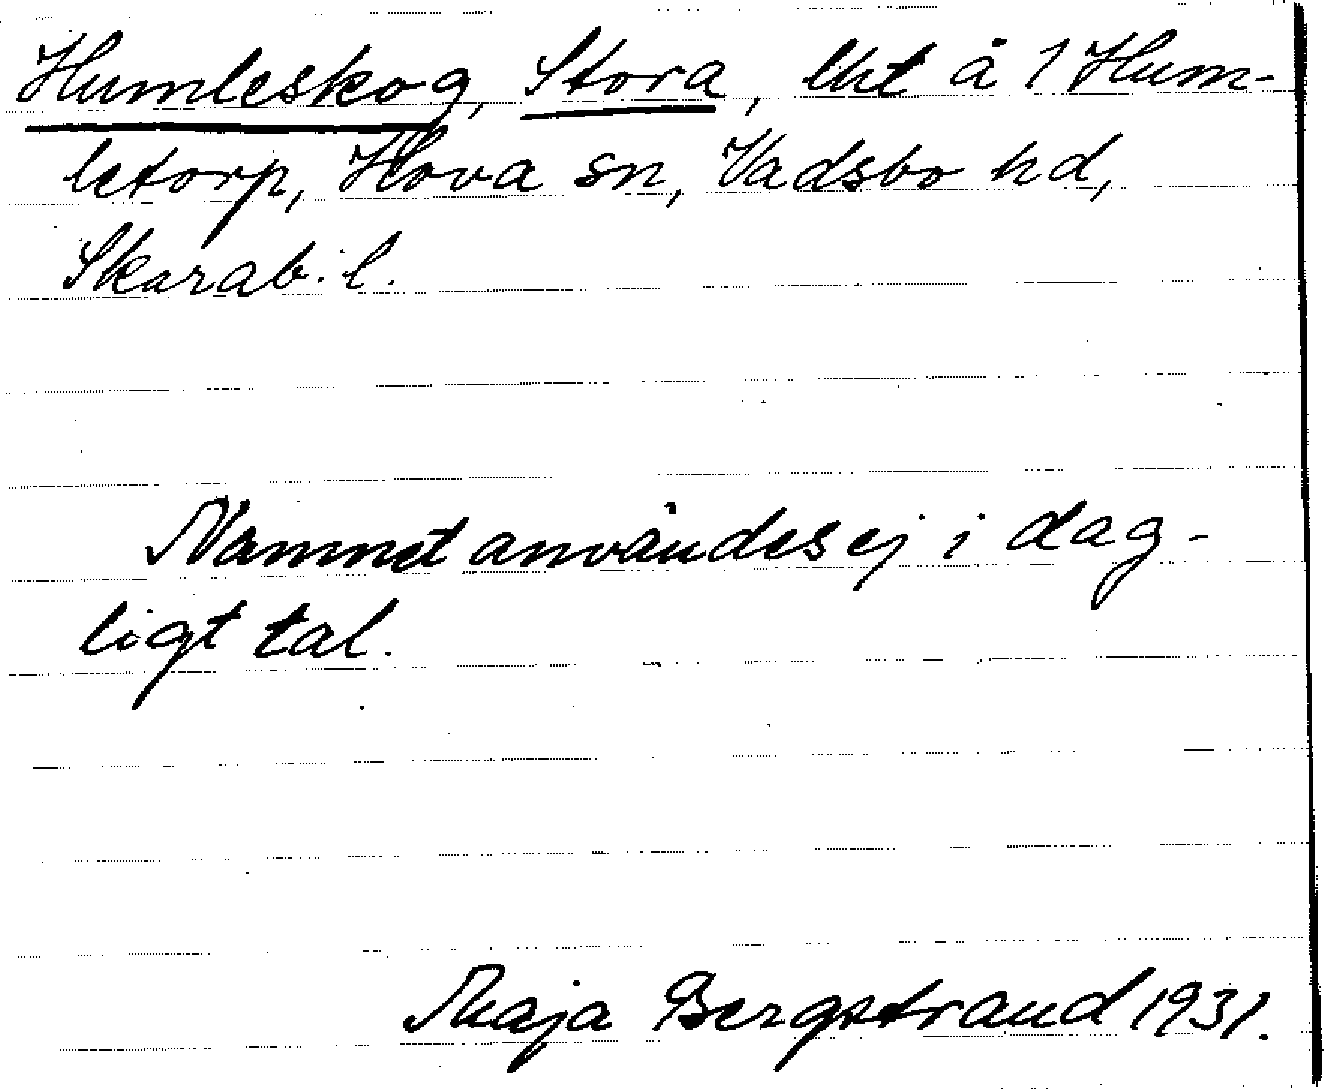 Humleskog, Stora, lht å 1 Hum-
letorp, Hova sn, Vadsbo hd,
Skarab. l.
Namnet användes ej i dag-
ligt tal.
Maja Bergstrand 1931.